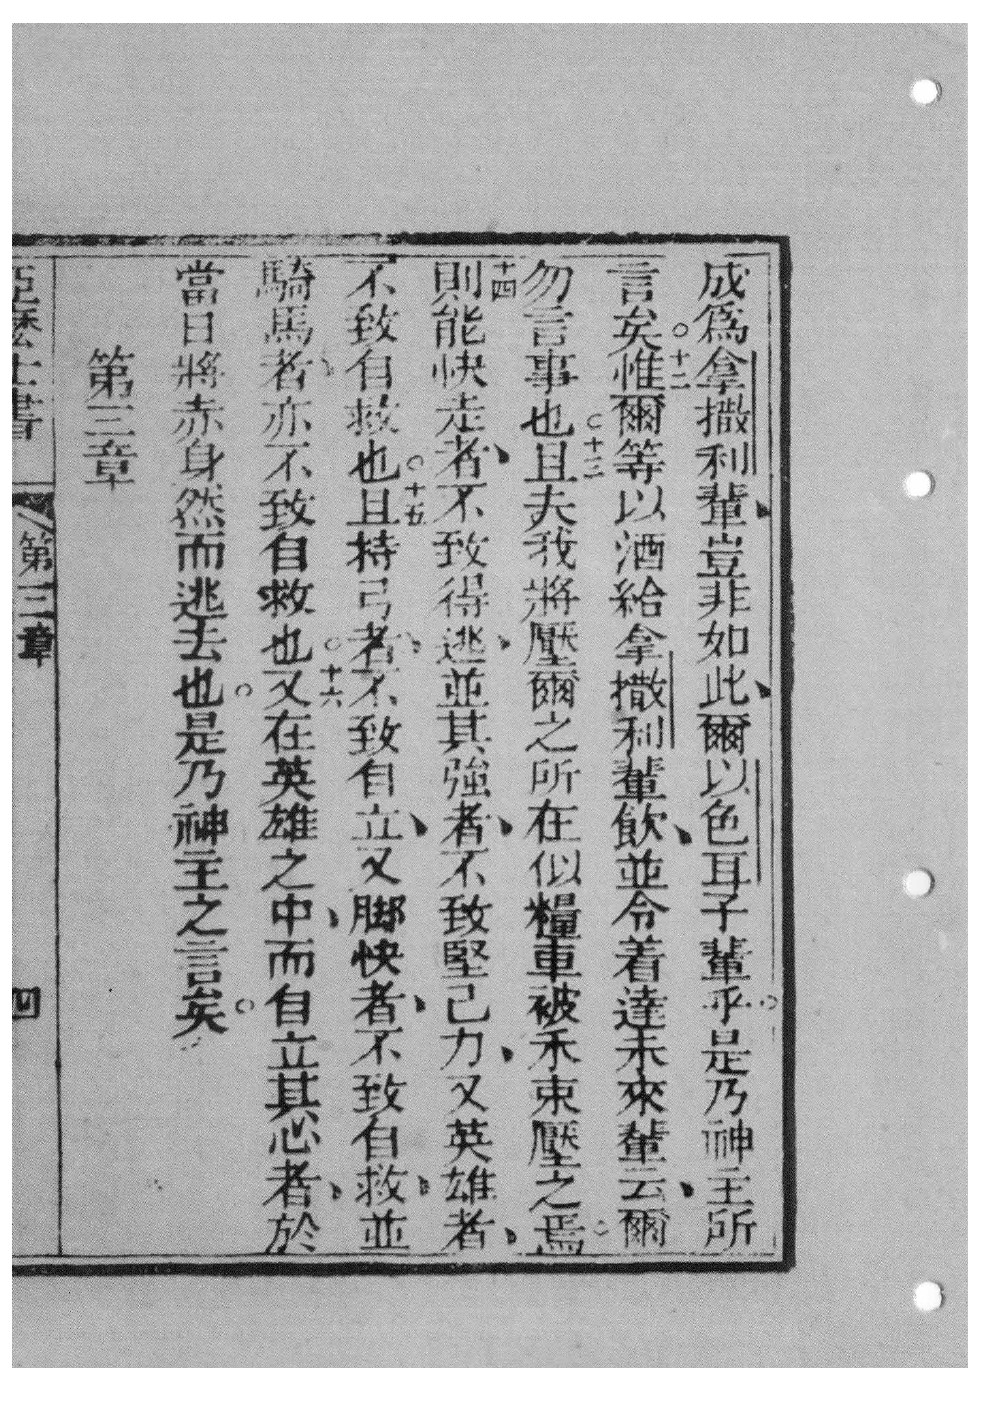 成爲拿撒利輩、豈非如此、爾以色耳子輩乎。是乃神主所
言矣。十二惟爾等以酒給拿撒利輩飲、並令着達未來輩云、爾
勿言事也。十三且夫我將壓爾之所在似糧車被禾束壓之焉。
十四則能快走者、不致得逃、並其強者、不致堅己力、又英雄者、
不致自救也。十五且持弓者、不致自立、又脚快者、不致自救、並
騎馬者、亦不致自救也。十六又在英雄之中、而自立其心者、於
當日將赤身然而逃去也。是乃神主之言矣。
第三章
亞麽士書 第三章 四